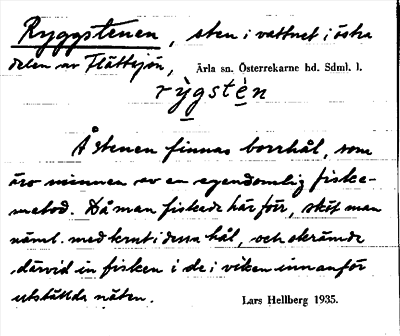 Ryggstenen, sten i vattnet i östra
delen av Flättsjön, Ärla sn. Österrekarne hd. Sdml. l.
rỳgstèn
Å stenen finnas borrhål, som
äro minnen av en egendomlig fiske-
metod. Då man fiskade här förr, sköt man
näml. med krut i dessa hål, och skrämde
därvid in fisken i de i viken innanför
utställda näten. Lars Hellberg 1935.